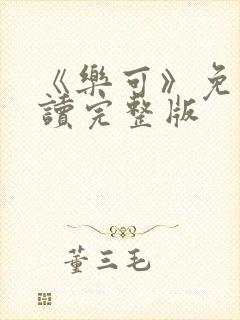 《樂可》免
讀完整版
董三毛